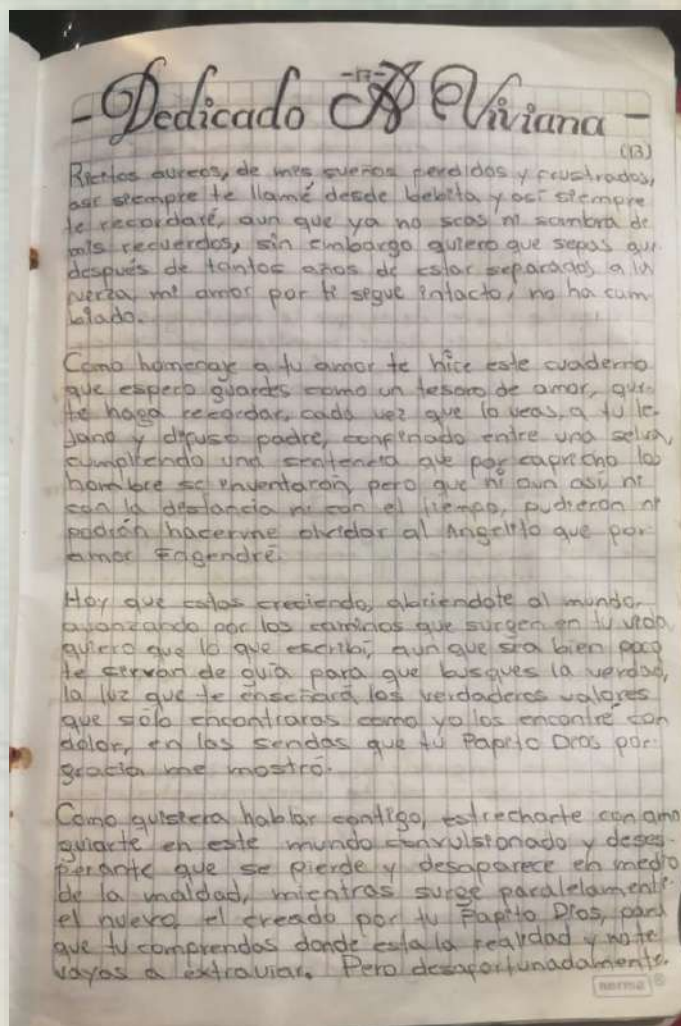 - Dedicado -17- A Viviana -
(13)
Ricitos aureos, de mis sueños perdidos y frustrados,
así siempre te llamé desde bebita y así siempre
te recordaré, aun que ya no seas ni sombra de
mis recuerdos, sin embargo quiero que sepas que
después de tantos años de estar separados a la
fuerza, mi amor por ti segue intacto, no ha cam
biado.
Como homenaje a tu amor te hice este cuaderno
que espero guardes como un tesoro de amor, que
te haga recordar, cada vez que lo veas, a tu le
jano y difuso padre, confinado entre una selva,
cumpliendo una sentencia que por capricho los
hombre se inventaron, pero que ni aun así ni
con la distancia ni con el tiempo, pudieron ni
podrán hacerme olvidar al Angelito que por
amor Engendré.
Hoy que estas creciendo, abriendote al mundo
avanzando por los caminos que surgen en tu vida
quiero que lo que escribí, aun que sea bien poco
te servan de guía para que busques la verdad,
la luz que te enseñará los verdaderos valores
que sólo encontraras como yo los encontré con
dolor, en las sendas que tu Papito Dios por
gracia me mostró.
Como quisiera hablar contigo, estrecharte con amo
guiarte en este mundo convulsionado y deses-
perante que se pierde y desaparece en medio
de la maldad, mientras surge paralelamente
el nuevo, el creado por tu Papito Dios, para
que tu comprendas donde esta la realidad y no te
vayas a extraviar. Pero desafortunadamente.
norma